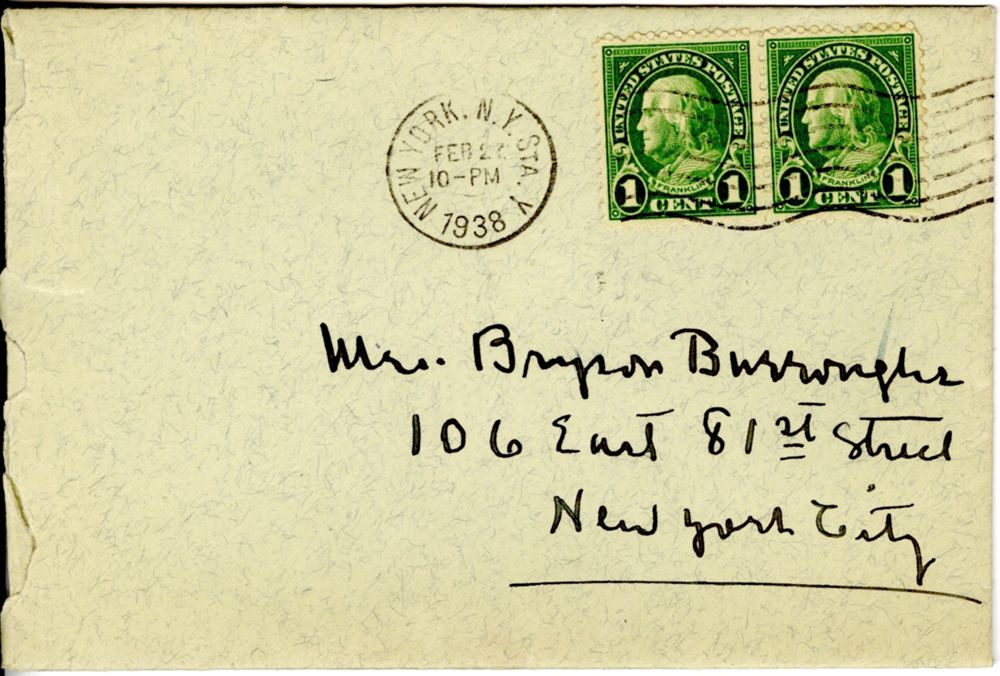 UNITED STATES POSTAGE
FRANKLIN
1 CENT 1
UNITED STATES POSTAGE
FRANKLIN
1 CENT 1
NEW YORK, N.Y. STA. Y
FEB 27
10-PM
1938
Mrs. Bryson Burroughs
106 East 81st Street
New York City